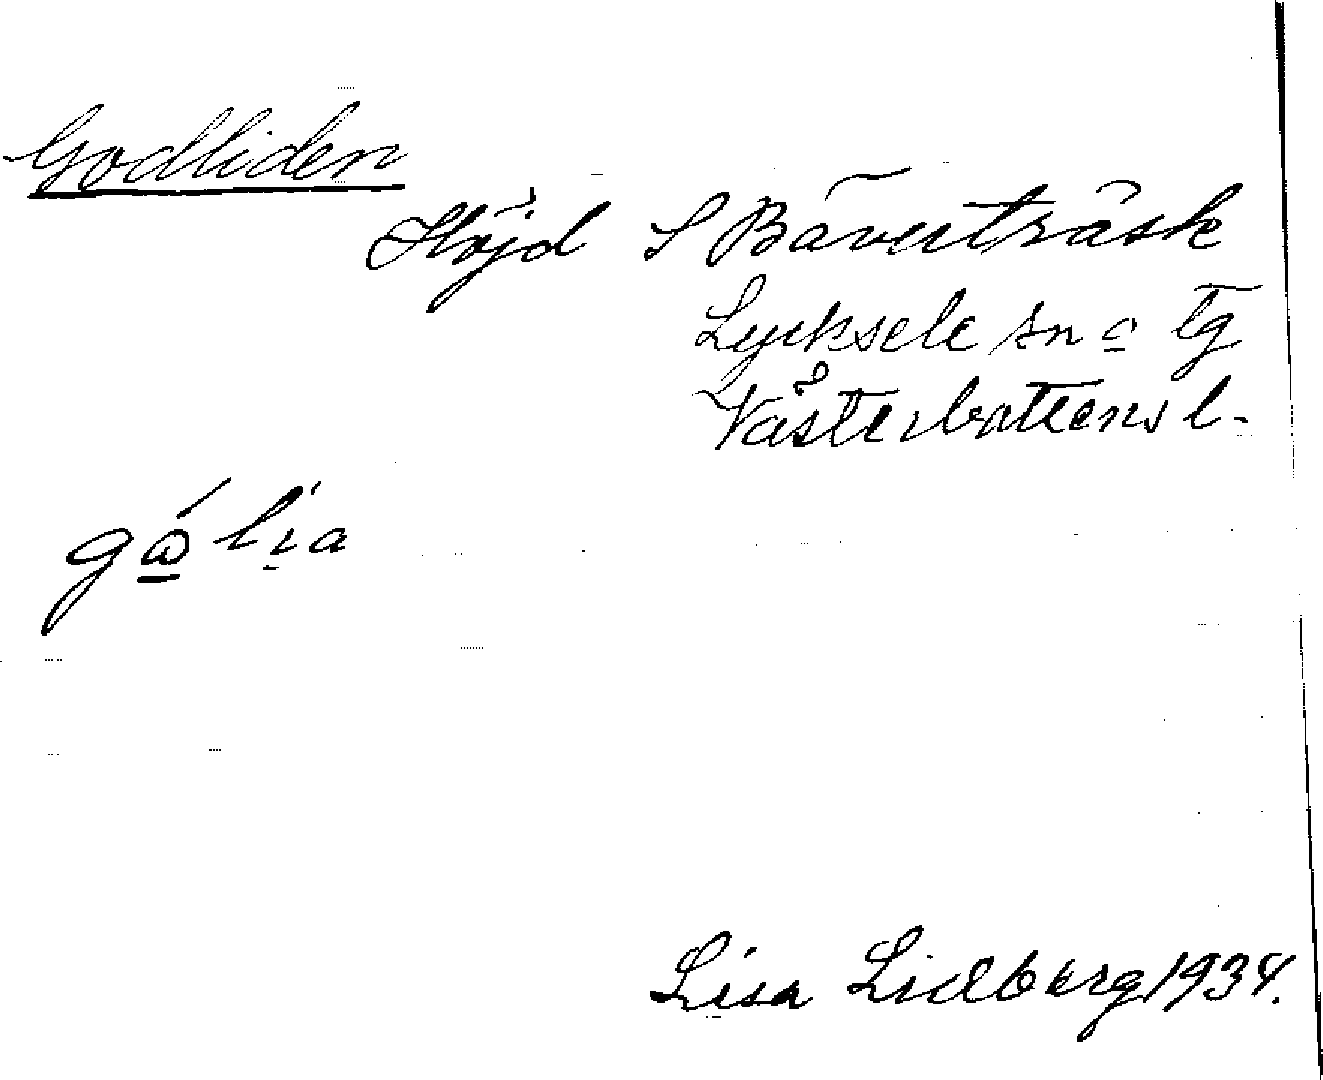 Godliden
Höjd S Bäverträsk
Lycksele sn o tg
Västerbottens l.
Lisa Lidberg 1934.